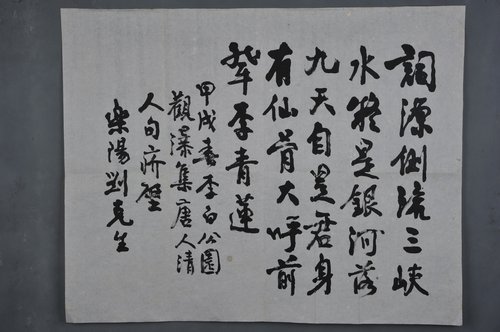 詞源倒流三峽
水疑是銀河落
九天自是君身
有仙骨大呼前
輩李青蓮
甲戌書李白公園
觀瀑集唐人清
人句疥壁
樂陽劉克生